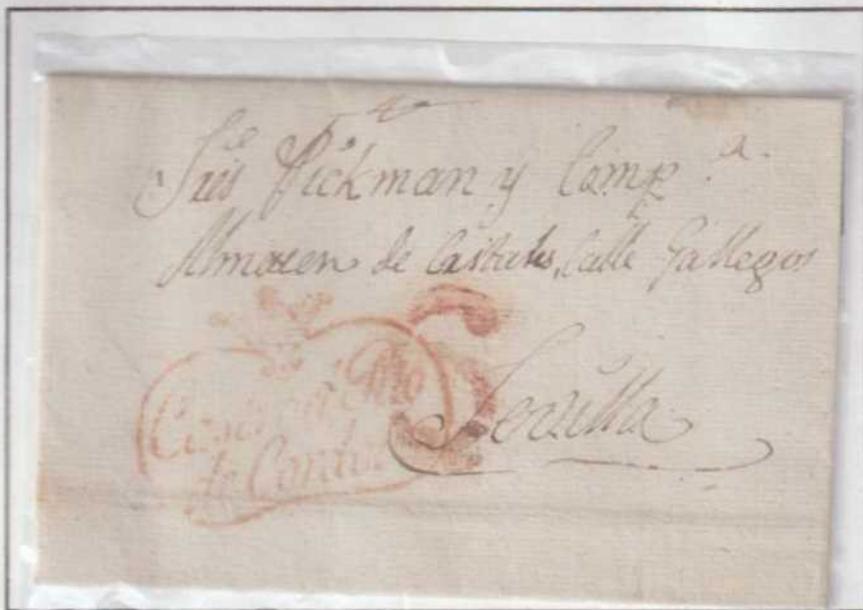 Sres Pickman y Comp.a
Almacen de Cristales, Calle Gallegos
Sevilla
de Cordova